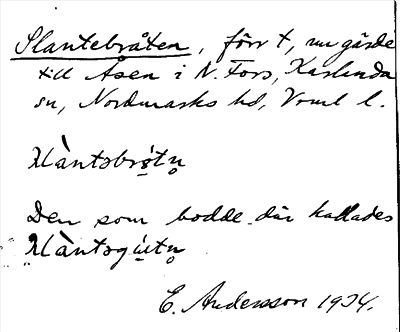 Slantebråten, förr t, nu gärde
till Åsen i N. Fors, Karlanda
sn, Nordmarks hd, Vrml. l.
Den som bodde där kallades
E. Andersson 1934.